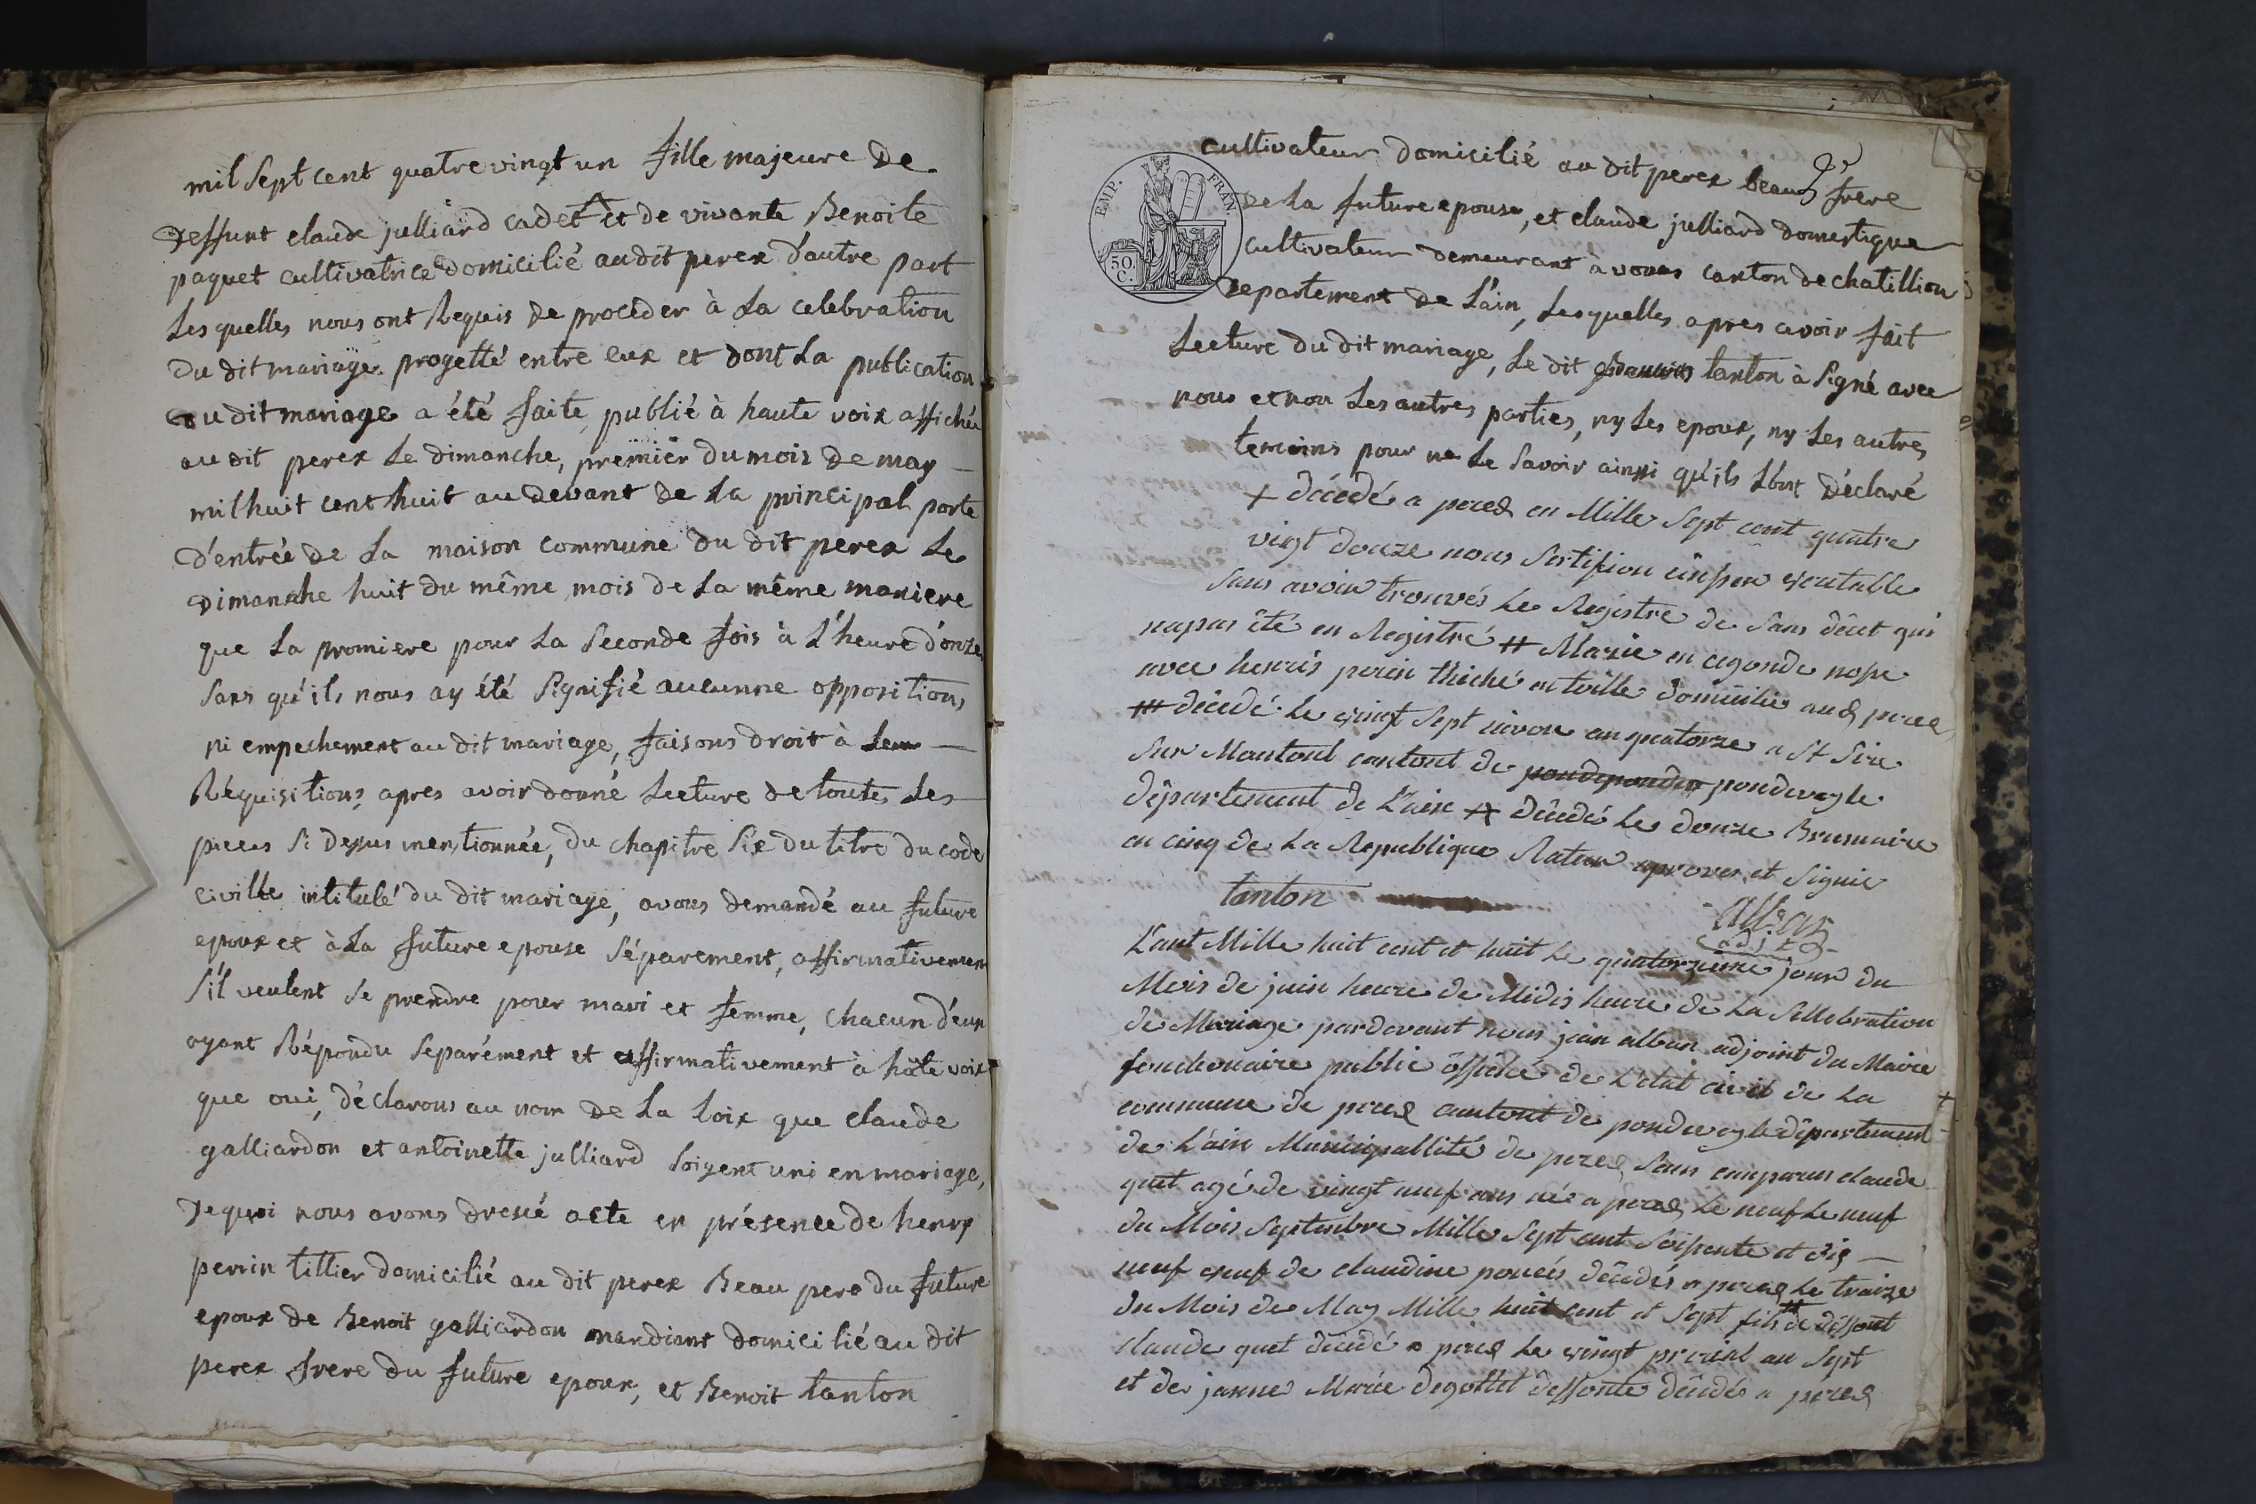 mil Sept cent quatre vingt un fille majeure De
Deffunt claude julliard cadet et de vivante Benoite
paquet cultivatrice Domicilié audit perex d'autre part
Lesquelles nous ont Requis De proceder à La celebration
Du dit mariage progetté entre eux et dont La publication
du dit mariage a été faite, publié à haute voix affichée
au dit perex Le dimanche, premier du mois De may
mil huit cent huit au devant de La principal porte
D'entrée De La maison commune Du dit perex Le
Dimanche huit Du même mois de La même maniere
que La promiere pour La Seconde fois à L'heure d'onze
Sans qu'ils nous ay été Signifié aucunne opposition,
ni empechement au dit mariage, faisons droit à Leur
Réquisitions apres avoir donné Lecture de toutes Les
pieces Si Dessus mentionnée, Du Chapitre Six Du titre Du code
Civille intitulé du dit mariage, avons demandé au future
epoux et à La future epouse Séparement, affirmativement
S'il veulent Se prendre pour mari et femme, Chacun d'eux
ayant Répondu Separément et affirmativement à hâte voix
que oui, déclarons au nom De La Loix que claude
galliardon et antoinette julliard Soigent uni en mariage,
Dequoi nous avons dressé acte en présence de henry
perrin tillier domicilié au dit perex Beau pere du future
epoux de Benoit galliardon mandiant domicilié au dit
perex frere du future epoux, et Benoit tanton
EMP. FRAN.
50 C.
cultivateur domicilié au dit perex beau frere
De La future epouse, et claude julliard domestique
cultivateur demeurant à vonas canton de chatillion
Departement De L'ain, Lesquelles apres avoir fait
Lecture du dit mariage, Le dit tanton à Signé avec
nous et non Les autres parties, ny Les epoux, ny Les autres
temoins pour ne Le Savoir ainsi qu'ils L'ont Déclaré
+ décedé a perex en Mille Sept cent quatre
vingt douze nous Sertifion veritable
Sans avoir trouvés Le Registre de Sans décet qui
napas été en Registré # Marie en cegonde nose
avec henris perin thiché domicilié aud perex
décedé Le vingt Sept nivou an quatorze a St Sire
Sur Mantont cantont de pondevegle
département de L'ain décedé Le douze Brumaire
an cinq de La Republique Rature aprover et Signié
tanton
alban
adjt
L'ant Mille huit cent et huit Le quatorzieme jour du
Mois de juin heure de Midis heure de La Sellebration
de Mariage pardevant nous jean alban adjoint du Maire
fonctionaire public officié de L'etat civil de La
commune de perex cantont de pondevegle département
de L'ain Municipallité de perex Sans comparus claude
quet agé de vingt neuf ans né a perex Le neuf Le neuf
du Mois Septembre Mille Sept cent Soisente et dis
neuf veuf de claudine décedés a perex Le traize
du Mois de May Mille huit cent et Sept fils de déffont
claude quet décedé a perex Le vingt prerial an Sept
et de janne Marie degottet deffonte décedés a perex